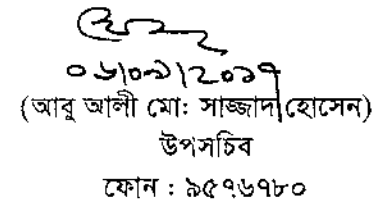 ০৬/০৯/২০১৭
(আবু আলী মো: সাজ্জাদ হোসেন)
উপসচিব
ফোন : ৯৫৭৬৭৮০